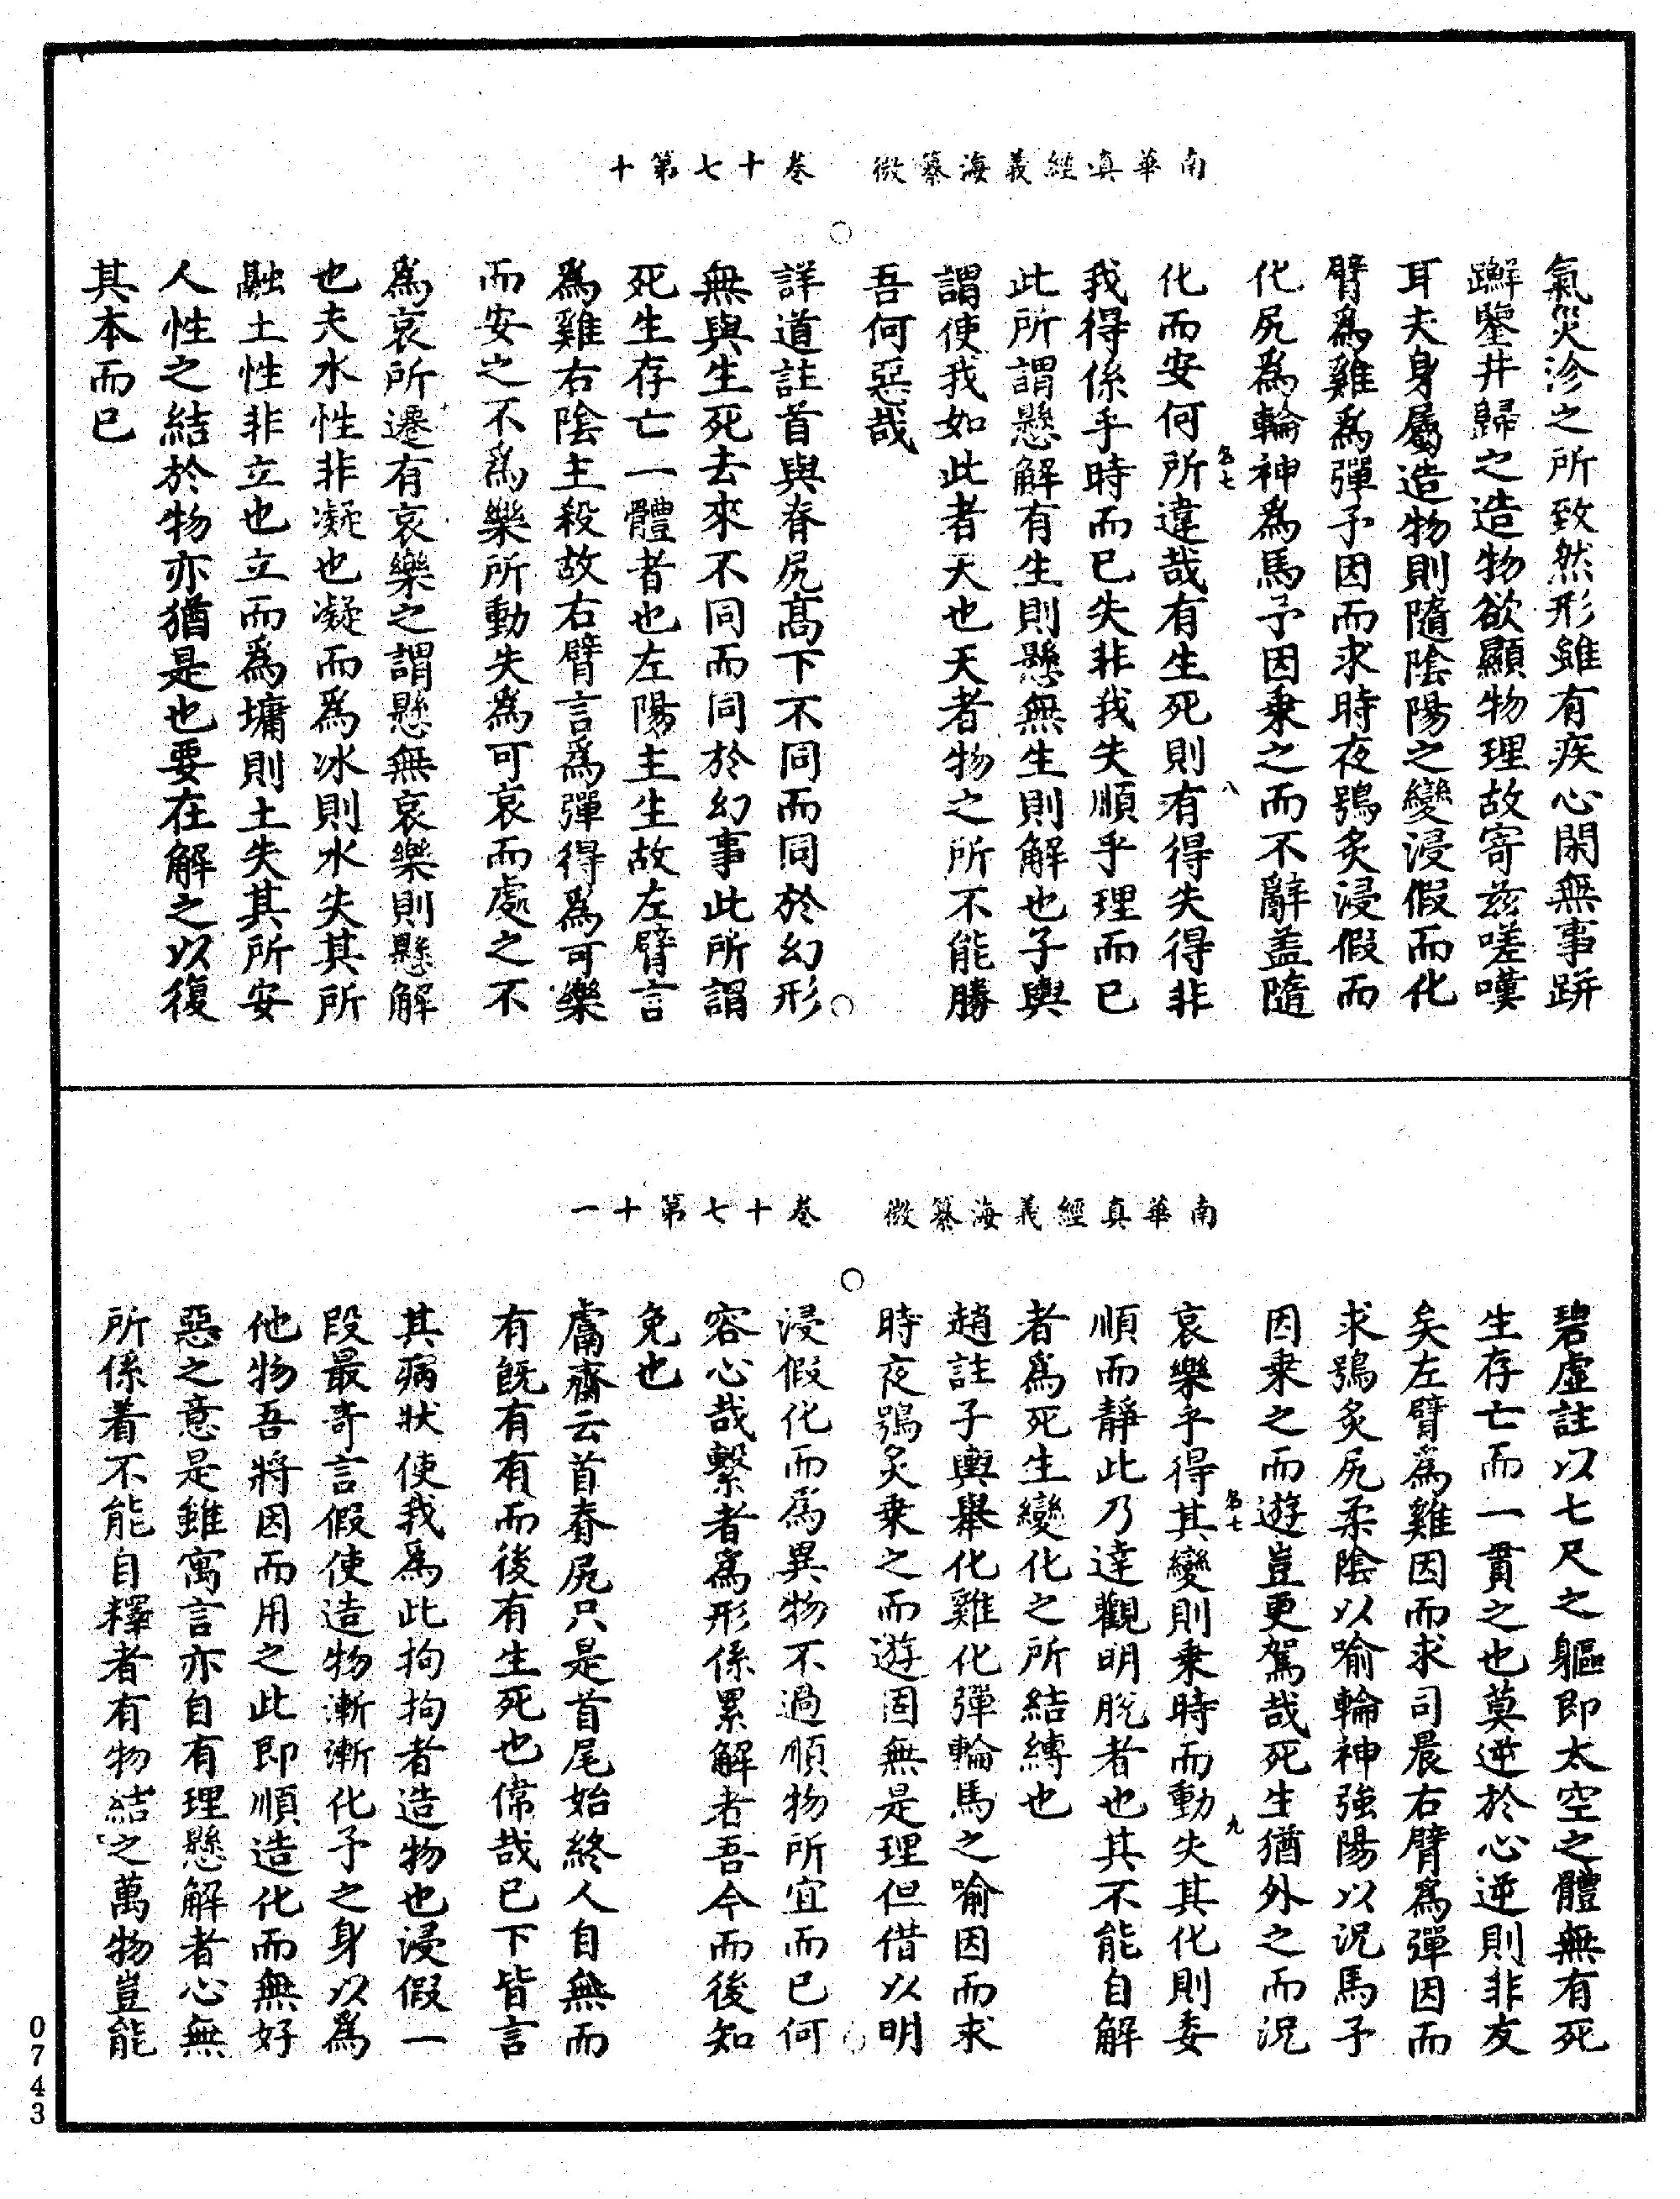 南華真經義海纂微　卷十七第十
氣災沴之所致然形雖有疾心閑無事跰
𨇤鑒井歸之造物欲顯物理故寄茲嗟嘆
耳夫身屬造物則隨陰陽之變浸假而化
臂為雞為彈予因而求時夜鴞炙浸假而
化尻為輪神為馬予因乗之而不辭盖隨
為七
八
化而安何所違哉有生死則有得失得非
我得係乎時而已失非我失順乎理而已
此所謂懸解有生則懸無生則解也子輿
謂使我如此者天也天者物之所不能勝
吾何惡哉
詳道註首與脊尻髙下不同而同於幻形
無與生死去來不同而同於幻事此所謂
死生存亡一體者也左陽主生故左臂言
為雞右陰主殺故右臂言為彈得為可樂
而安之不為樂所動失為可哀而處之不
為哀所遷有哀樂之謂懸無哀樂則懸解
也夫水性非凝也凝而為冰則水失其所
融土性非立也立而為墉則土失其所安
人性之結於物亦猶是也要在解之以復
其本而已
南華真經義海纂微　卷十七第十一
碧虛註以七尺之軀即太空之體無有死
生存亡而一貫之也莫逆於心逆則非友
矣左臂為雞因而求司晨右臂為彈因而
求鴞炙尻柔陰以喻輪神強陽以況馬予
因乗之而遊豈更駕哉死生猶外之而況
為七
九
哀樂乎得其變則乗時而動失其化則委
順而靜此乃達觀明脫者也其不能自解
者為死生變化之所結縛也
趙註子輿舉化雞化彈輪馬之喻因而求
時夜鴞炙乗之而遊固無是理但借以明
浸假化而為異物不過順物所宜而已何
容心哉繫者為形係累解者吾今而後知
免也
鬳齋云首脊尻只是首尾始終人自無而
有既有有而後有生死也偉哉已下皆言
其病狀使我為此拘拘者造物也浸假一
段最竒言假使造物漸漸化予之身以為
他物吾將因而用之此即順造化而無好
惡之意是雖寓言亦自有理懸解者心無
所係着不能自釋者有物結之萬物豈能
0743